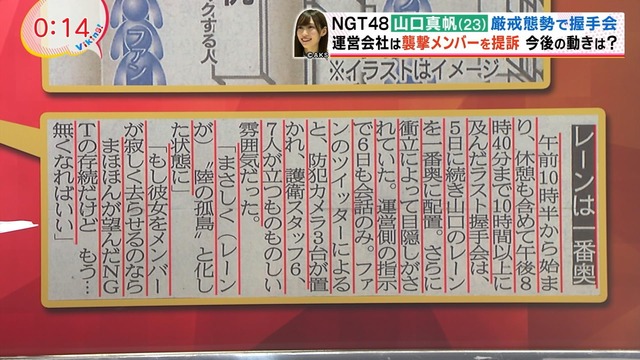 0:14
Viking!
NGT48 山口真帆(23) 厳戒態勢で握手会
運営会社は襲撃メンバーを提訴 今後の動きは?
©AKS
ファン
ファン
クする人
※イラストはイメージ
レーンは一番奥
午前10時半から始ま
り、休憩も含めて午後8
時40分まで10時間以上に
及んだラスト握手会は、
5日に続き山口のレーン
を一番奥に配置。さらに
衝立によって目隠しがさ
れていた。運営側の指示
で6日も会話のみ。ファ
ンのツイッターによる
と、防犯カメラ3台が置
かれ、護衛スタッフ6、
7人が立つものものしい
雰囲気だった。
「まさしく(レーン
が)〝陸の孤島〟と化し
た状態に」
「もし彼女をメンバー
が寂しく去らせるのなら
まほほんが望んだNG
Tの存続だけど もう…
無くなればいい」